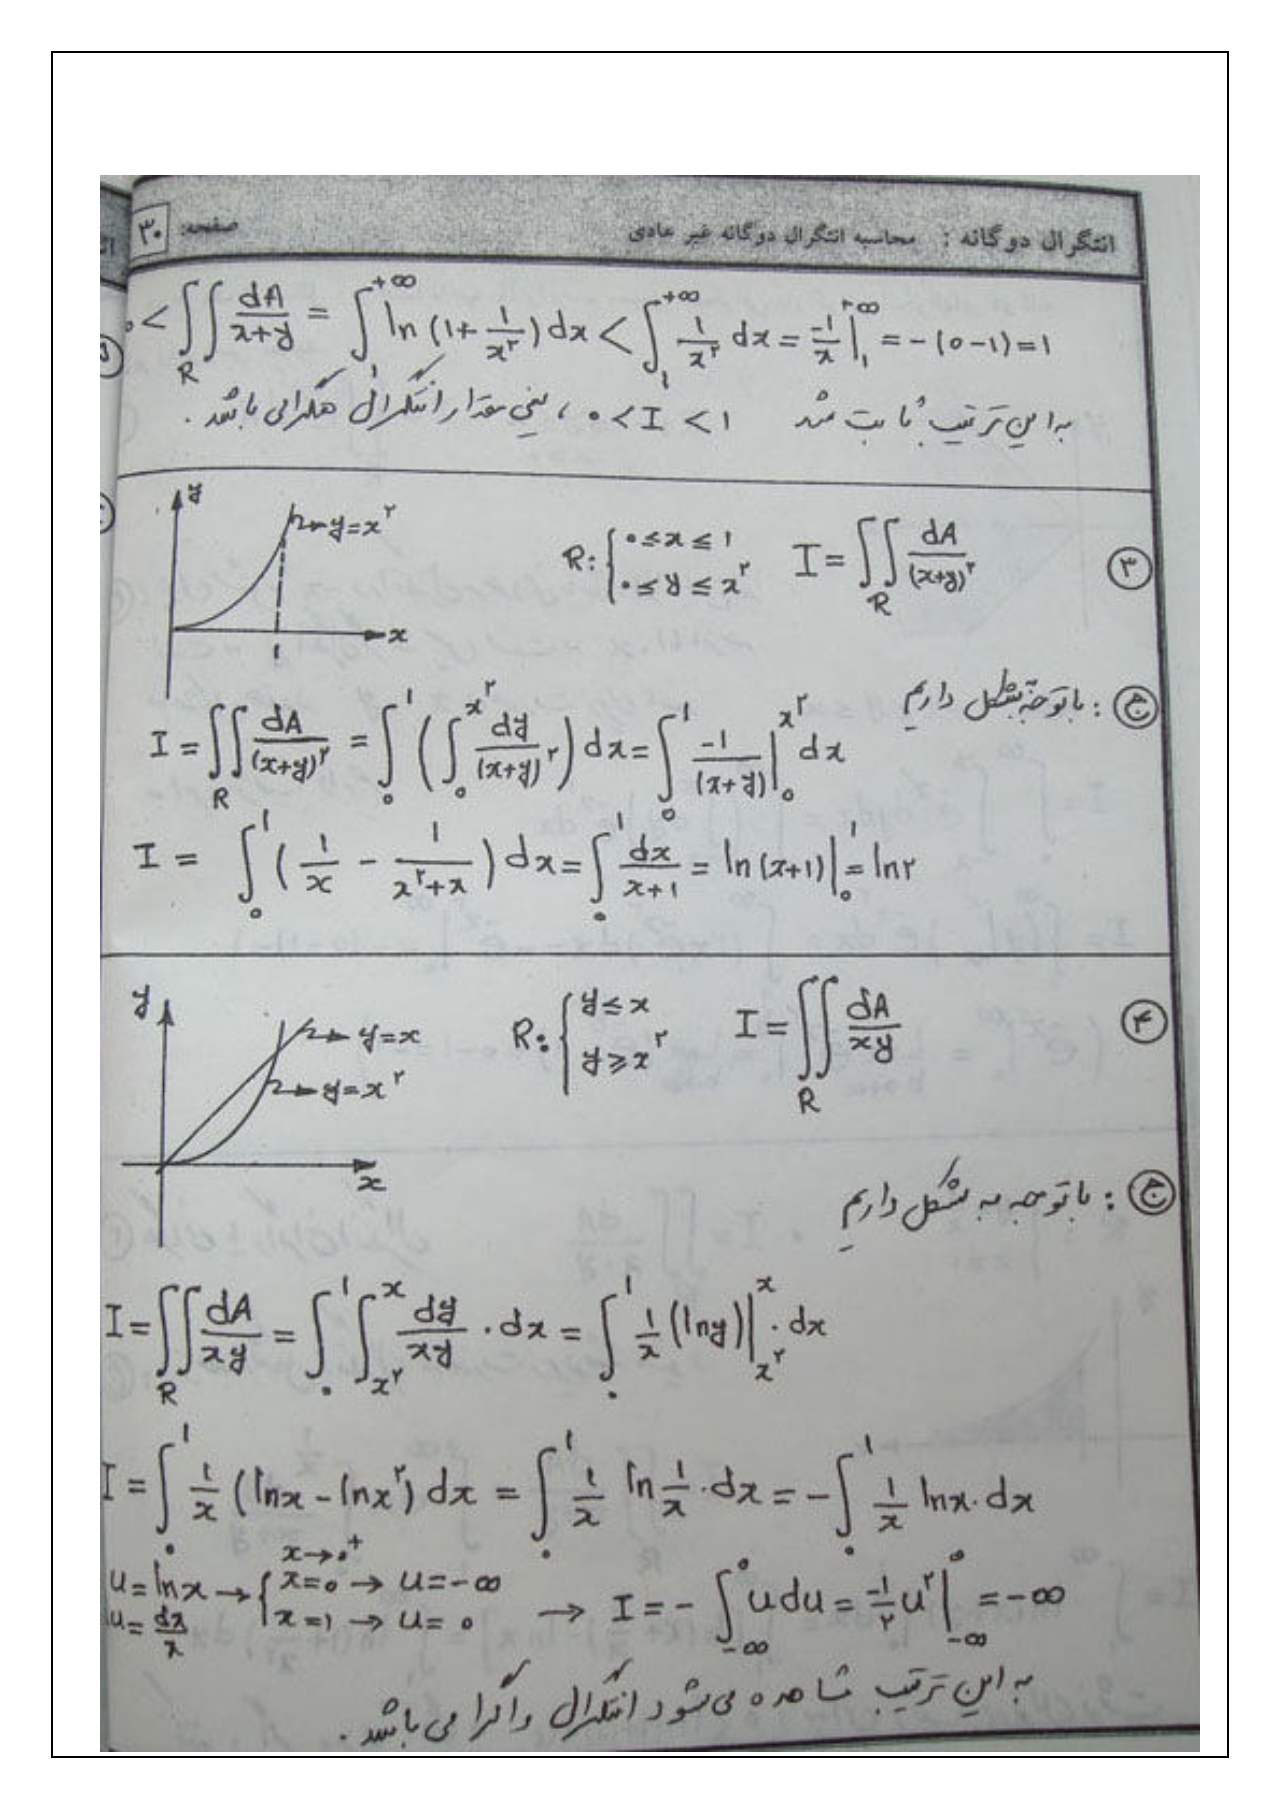 انتگرال دوگانه : محاسبه انتگرال دوگانه غیر عادی صفحه: ۳۰
۰ < ∬_R dA/(x+y) = ∫_1^{+∞} ln (1+ 1/x^۲) dx < ∫_1^{+∞} 1/x^۲ dx = -1/x |_1^{+∞} = -(0-1) = 1
به این ترتیب ثابت شد ۰ < I < ۱ ، یعنی مقدار انتگرال همگرا می باشد .
۳ I = ∬_R dA/(x+y)^۲ R: { ۰ ≤ x ≤ ۱ ۰ ≤ y ≤ x^۲
y y=x^۲ ۱ x
ج : با توجه بشکل داریم
I = ∬_R dA/(x+y)^۲ = ∫_0^1 ( ∫_0^{x^۲} dy/(x+y)^۲ ) dx = ∫_0^1 -1/(x+y) |_0^{x^۲} dx
I = ∫_0^1 ( 1/x - 1/(x^۲+x) ) dx = ∫_0^1 dx/(x+1) = ln (x+1) |_0^1 = ln۲
۴ I = ∬_R dA/xy R: { y ≤ x y ≥ x^۲
y y=x y=x^۲ x
ج : با توجه به شکل داریم
I = ∬_R dA/xy = ∫_۰^1 ∫_{x^۲}^x dy/xy . dx = ∫_۰^1 1/x (lny) |_{x^۲}^x . dx
I = ∫_۰^1 1/x (lnx - lnx^۲) dx = ∫_۰^1 1/x ln 1/x . dx = - ∫_۰^1 1/x lnx . dx
u = lnx → { x→۰^+ x=0 → u=-∞ x=1 → u=0 → I = - ∫_{-∞}^0 u du = -1/۲ u^۲ |_{-∞}^0 = -∞
u = dx/x
به این ترتیب مشاهده می شود انتگرال واگرا می باشد .